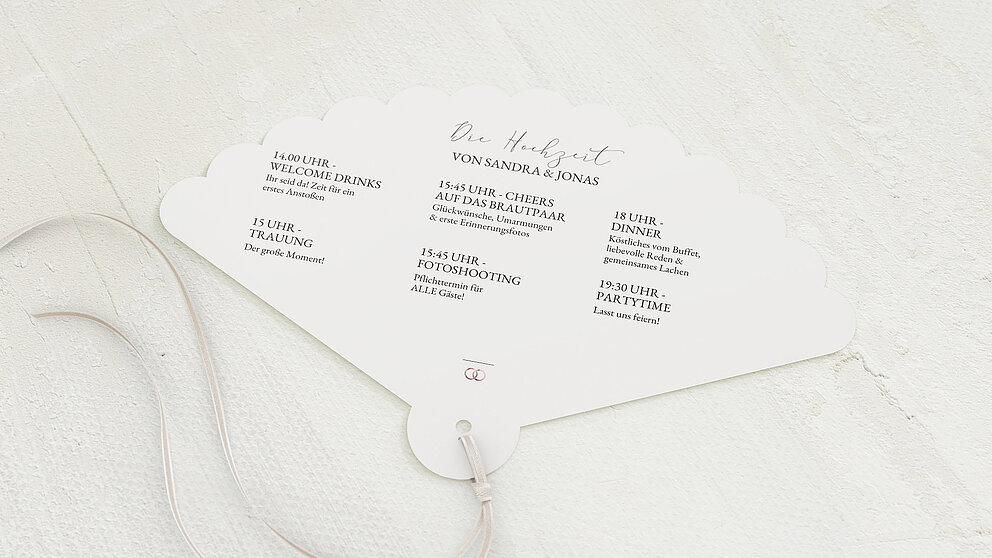 Die Hochzeit
VON SANDRA & JONAS
14.00 UHR -
WELCOME DRINKS
Ihr seid da! Zeit für ein
erstes Anstoßen
15 UHR -
TRAUUNG
Der große Moment!
15:45 UHR - CHEERS
AUF DAS BRAUTPAAR
Glückwünsche, Umarmungen
& erste Erinnerungsfotos
15:45 UHR -
FOTOSHOOTING
Pflichttermin für
ALLE Gäste!
18 UHR -
DINNER
Köstliches vom Buffet,
liebevolle Reden &
gemeinsames Lachen
19:30 UHR -
PARTYTIME
Lasst uns feiern!